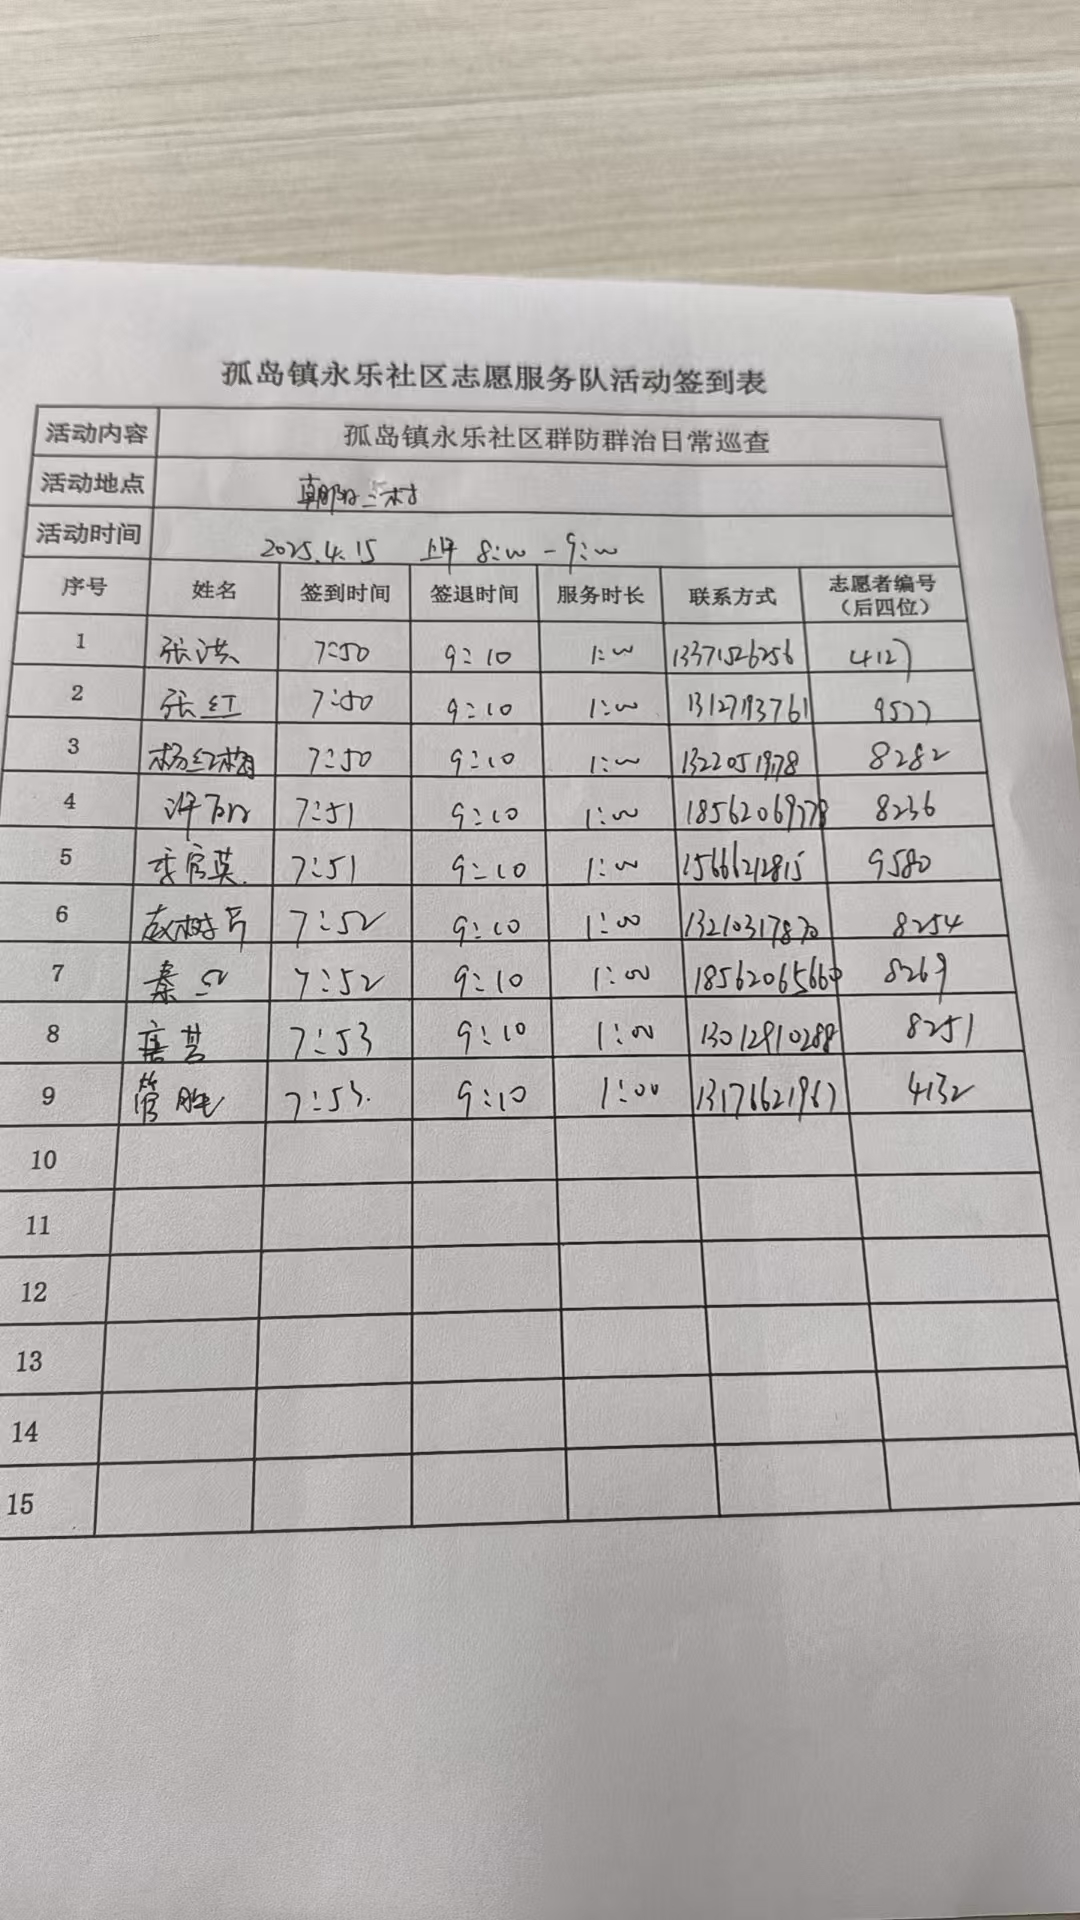 孤岛镇永乐社区志愿服务队活动签到表
活动内容 孤岛镇永乐社区群防群治日常巡查
活动地点 朝阳三村
活动时间 2025.4.15 上午 8:00-9:00
序号 姓名 签到时间 签退时间 服务时长 联系方式 志愿者编号（后四位）
1 张洪 7:50 9:10 1:00 13371526256 4127
2 张红 7:50 9:10 1:00 13127193761 9577
3 杨红梅 7:50 9:10 1:00 8282
4 7:51 9:10 1:00 18562069778 8236
5 李官英 7:51 9:10 1:00 15666212815 9580
6 7:52 9:10 1:00 13210317870 8254
7 秦 7:52 9:10 1:00 18562065660 8269
8 唐芸 7:53 9:10 1:00 13012910288 8251
9 管 7:53. 9:10 1:00 13176621967 4132
10
11
12
13
14
15